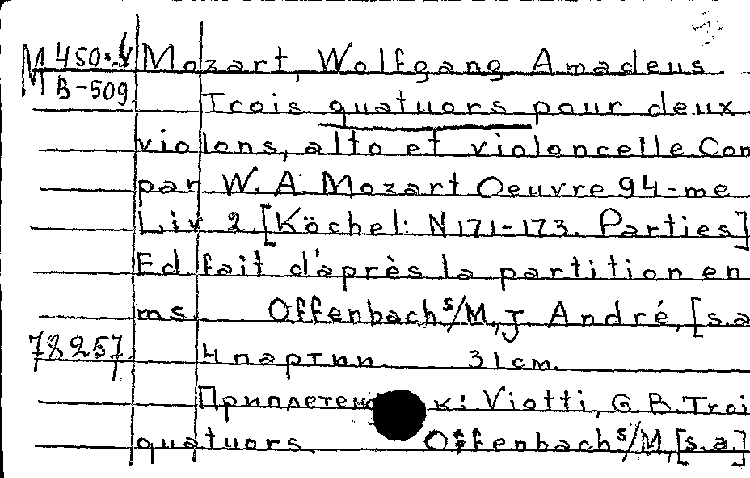 M 450.4 Mozart, Wolfgang Amadeus
B-509
Trois quatuors pour deux
violons, alto et violoncelle Com
par W. A. Mozart Oeuvre 94-me
Liv 2 [Köchel: N 171-173. Parties]
Ed fait d'après la partition en
ms Offenbach s/M, J. André, [s.a
78257 4 партии 31 cm.
Приплетено к: Viotti, G B. Troi
quatuors. Offenbach s/M, [s.a]